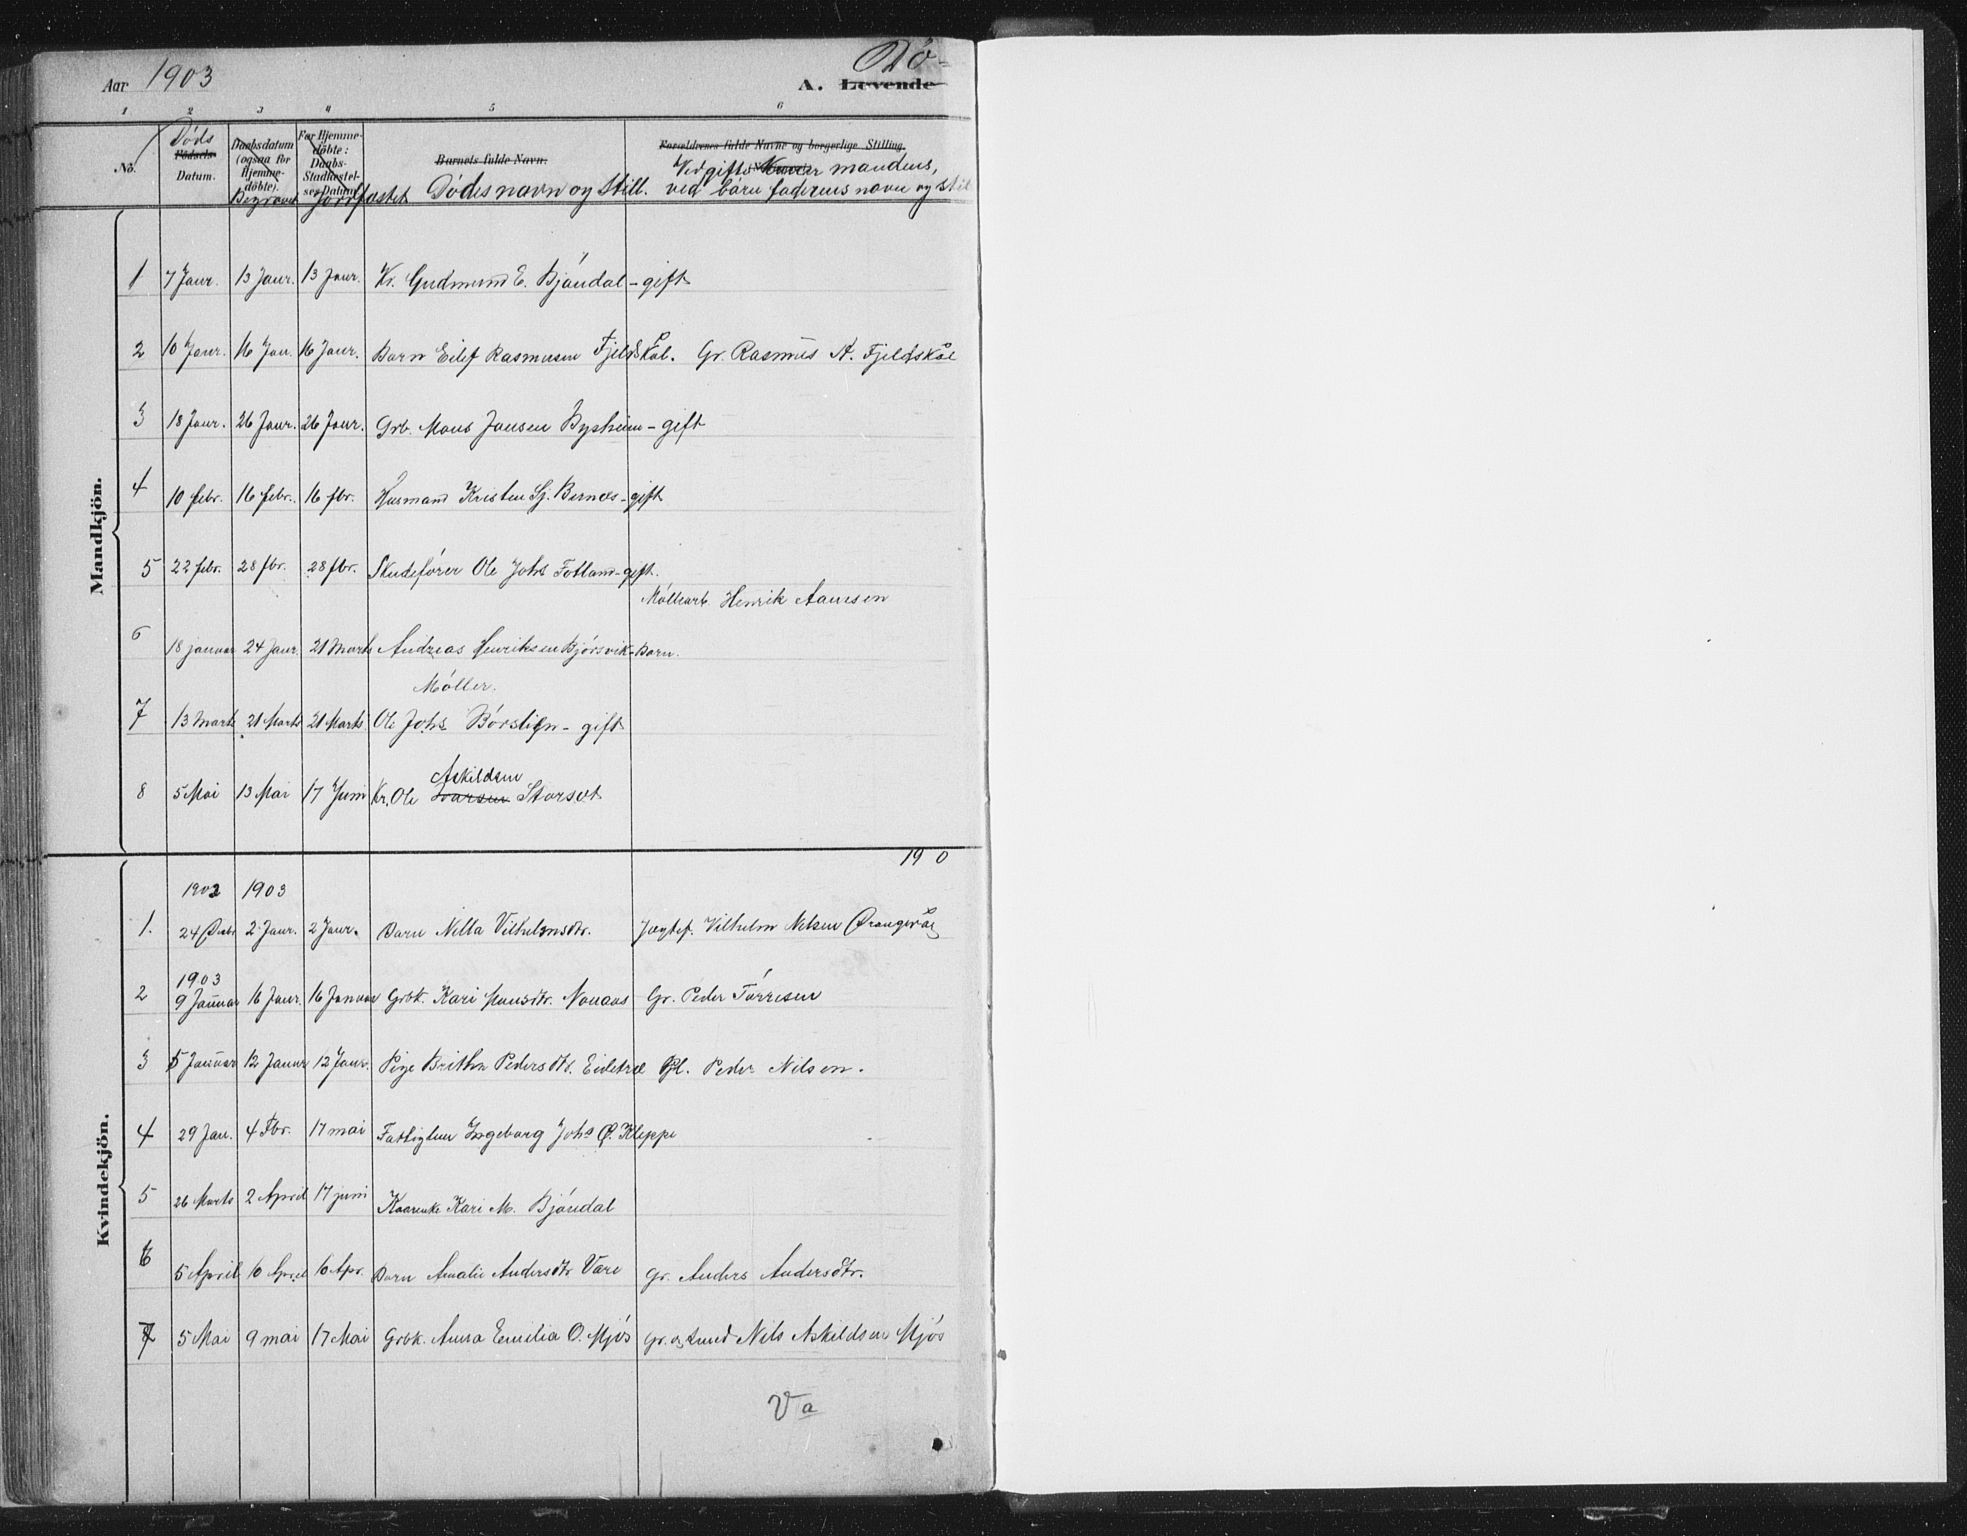 Aar 1903
Dö-
A. Levende
1 2 3 4 5 6
No.
Döds
Födsels-
Datum.
Daabsdatum
(ogsaa for
Hjemme-
döbte).
Begravet
For Hjemme-
döbte:
Daabs-
Stadfæstel-
ses Datum.
Jordfæstet
Barnets fulde Navn.
Dödes navn og Still.
Forældrenes fulde Navne og borgerlige Stilling.
Ved gifte Koner mandens,
ved börn faderens navn og stil
Mandkjön.
1 7 Janr. 13 Janr. 13 Janr. Kr. Gudmund E. Bjöndal - gift
2 10 Janr. 16 Jan. 16 Janr. Barn Eilef Rasmusen Fjeldskål. Gr. Rasmus A. Fjeldskål
3 18 Janr. 26 Janr. 26 Janr. Grb. Mons Jansen Bysheim - gift
4 10 febr. 16 febr. 16 fbr. Husmand Kristen Sj. Bernes - gift
5 22 febr. 28 fbr. 28 fbr. Skudeförer Ole Johs Fotland - gift.
Möllearb. Henrik Aanesen
6 18 januar 24 Janr. 21 Marts Andreas Henriksen Bjørsvik - Barn.
Möller.
7 13 Marts 21 Marts 21 Marts Ole Johs Börslien - gift
Askildsen
8 5 Mai 13 Mai 17 Juni Kr. Ole Ivarsen Storset
190
Kvindekjön.
1902 1903
1. 24 Decbr 2 Janr. 2 Janr. Barn Nilla Vilhelmsdtr. Jægtef. Vilhelm Nelsen Ørangevåg
1903
2 9 Januar 16 Janr. 16 Januar Grbk. Kari Monsdtr. Nonaas Gr. Peder Törresen
3 5 Januar 12 Januar 12 Janr. Pige Britha Pedersdtr. Eidetræ Pl. Peder Nilsen.
4 29 Jan. 4 Fbr. 17 mai Fattiglem Ingeborg Johs Ø. Kleppe
5 26 Marts 2 April 17 juni Kaarenke Kari M. Bjöndal
6 5 April 10 April 10 Apr. Barn Amalie Andersdtr Vare Gr. Anders Andersdtr.
7 5 Mai 9 mai 17 Mai Grbk. Anna Emilia O. Mjös Gr. og Smed Nils Askildsen Mjös
Va